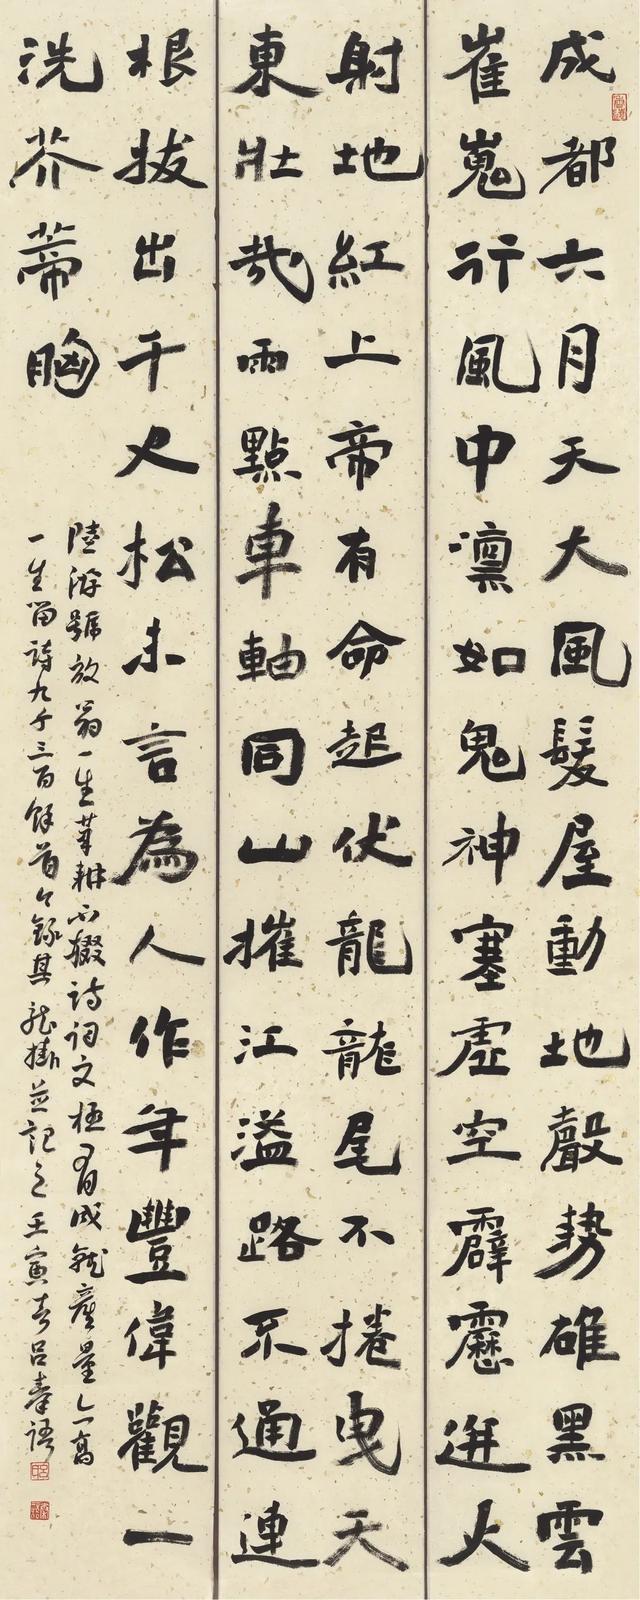 成都六月天大風髮屋動地聲勢雄黑雲
崔嵬行風中凜如鬼神塞虛空霹靂迸火
射地紅上帝有命起伏龍龍尾不捲曳天
東壯哉雨點車軸同山摧江溢路不通連
根拔出千尺松未言為人作年豐偉觀一
洗芥蒂胸
陸游號放翁一生筆耕不輟詩詞文極有成就產量亦高
一生留詩九千三百餘首今錄其龍掛並記之壬寅春呂語